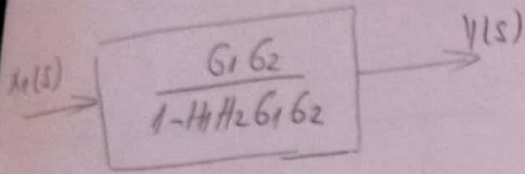 x1(s)
G1 G2
1-H1H2G1G2
y(s)